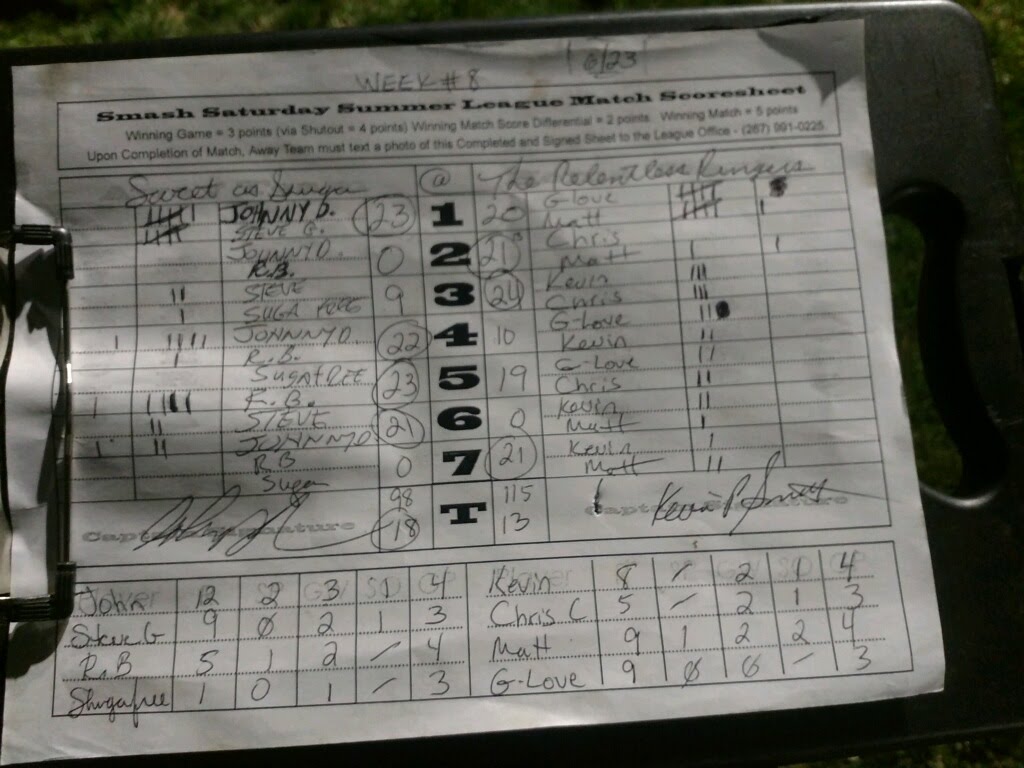 WEEK # 8 6/23
Smash Saturday Summer League Match Scoresheet
Winning Game = 3 points (via Shutout = 4 points) Winning Match Score Differential = 2 points Winning Match = 5 points
Upon Completion of Match, Away Team must text a photo of this Completed and Signed Sheet to the League Office - (267) 991-0225
Sweet as Shuga @ The Relentless Ringers
JOHNNY D. 23 1 20 G-Love
STEVE G. Matt
JOHNNY D. 0 2 21 Chris
R.B. Matt
STEVE 9 3 24 Kevin
SUGA FREE Chris
JONNY D. 22 4 10 G-Love
R.B. Kevin
SUGAFREE 23 5 19 G-Love
R.B. Chris
STEVE 21 6 0 Kevin
JOHNNY D Matt
RB 0 7 21 Kevin
Suga Matt
98 T 115
Captain Signature 18 13 Captain Signature
John 12 2 3 1 4 Kevin 8 / 2 1 4
Steve G 9 0 2 1 3 Chris C 5 / 2 1 3
R.B 5 1 2 / 4 Matt 9 1 2 2 4
Shugafree 1 0 1 / 3 G-Love 9 0 0 / 3